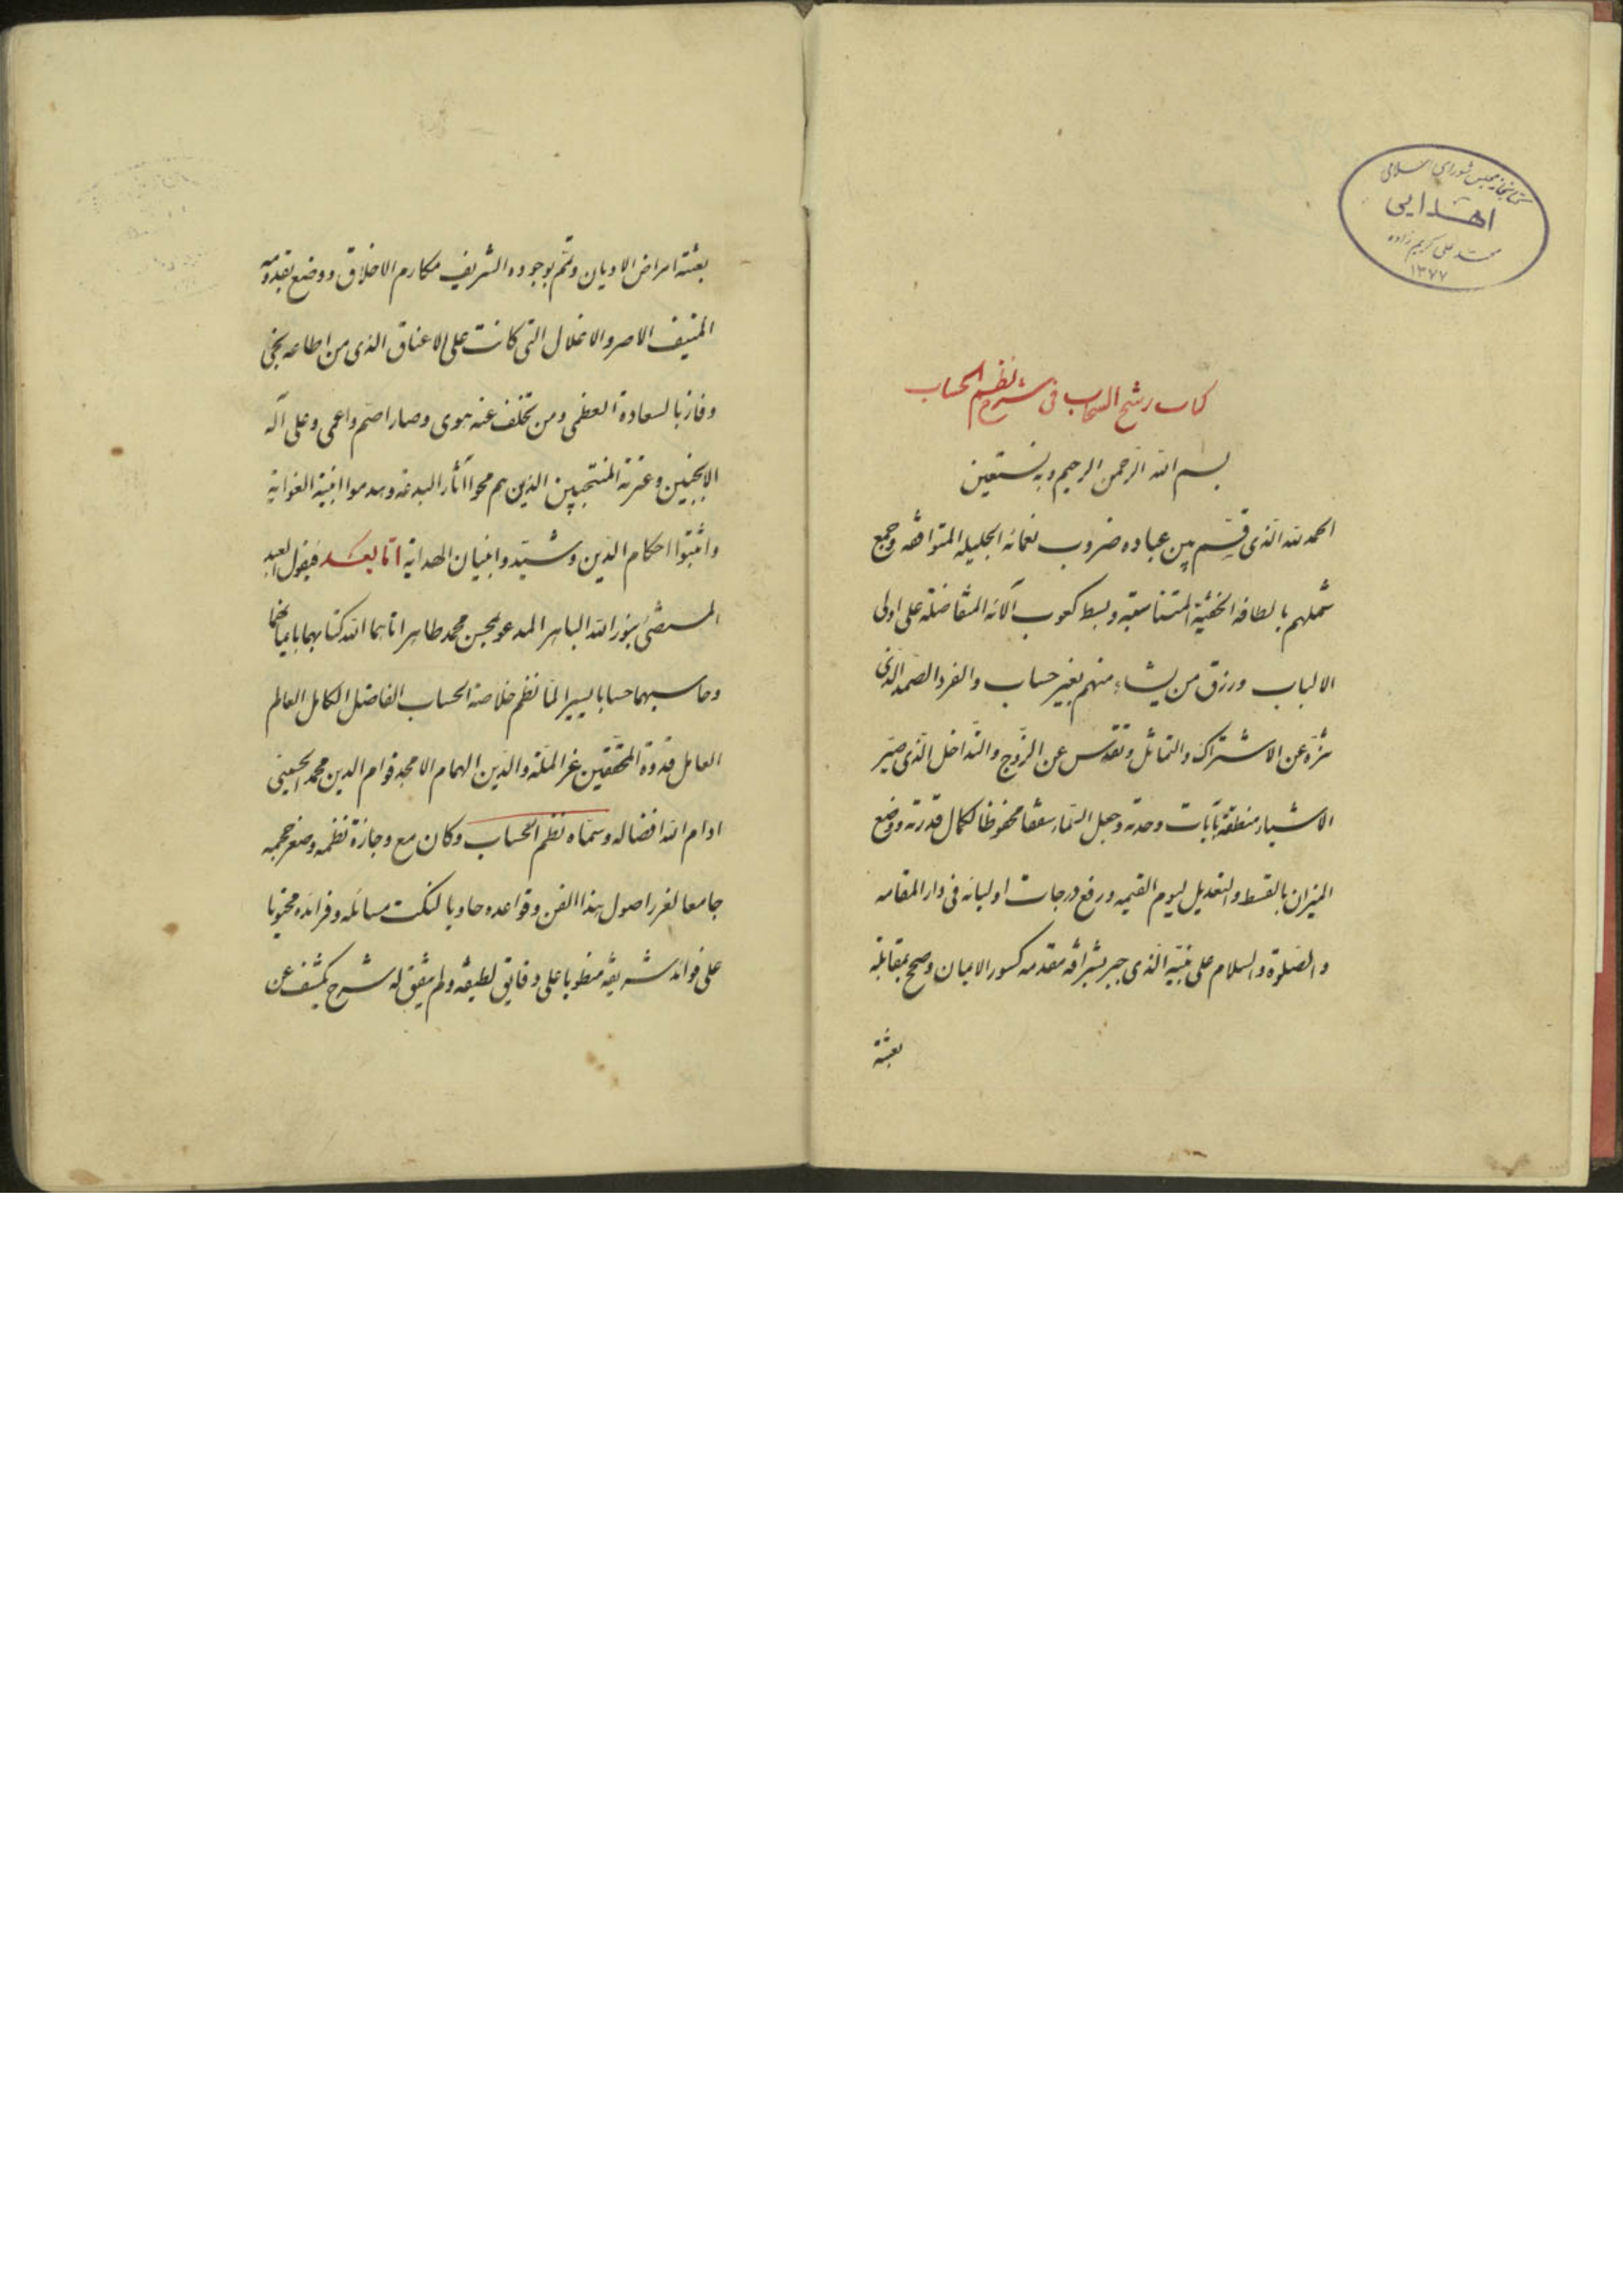 کتابخانه مجلس شورای اسلامی
اهدایی
محمد علی کریم زاده
۱۳۷۷
کتاب رشح السحاب فی شرح نظم الحساب
بسم الله الرحمن الرحیم وبه نستعین
الحمد لله الذی قسم بین عباده ضروب نعمائه الجلیله المتوافقه وجمع
شملهم بالطافه الخفیة المتناسقه وبسط کعوب آلائه المتفاضله علی اولی
الالباب ورزق من یشاء منهم بغیر حساب والفرد الصمد الذی
تنزه عن الاشتراک والتماثل وتقدس عن الزوج والتداخل الذی صیر
الاشیاء منطقة بآیات وحدته وجعل السماء سقفا محفوظا لکمال قدرته ووضع
المیزان بالقسط والتعدیل لیوم القیمه ورفع درجات اولیائه فی دار المقامه
والصلوة والسلام علی نبیه الذی جبر بشرافه مقدمه کسور الایمان وصحح بمقابلة
بعثته
بعثته امراض الادیان وتمم بوجوده الشریف مکارم الاخلاق ووضع بقدومه
المنیف الاصر والاغلال التی کانت علی الاعناق الذی من اطاعه نجی
وفاز بالسعادة العظمی ومن تخلف عنه هوی وصار اصم واعمی وعلی آله
الانجبین وعترته المنتجبین الذین هم محوا آثار البدعه وهدموا ابنیة الغوایة
واثبتوا احکام الدین وشیدوا بنیان الهدایة اما بعد فیقول العبد
المستضیٔ بنور الله الباهر المدعو بمحسن محمد طاهر اتاهما الله کتابهما بایمانهما
وحاسبهما حسابا یسیرا لما نظم خلاصة الحساب الفاضل الکامل العالم
العامل قدوة المحققین عز الملة والدین الهمام الامجد قوام الدین محمد الحسینی
ادام الله افضاله وسماه نظم الحساب وکان مع وجازة نظمه وصغر حجمه
جامعا لغرر اصول هذا الفن وقواعده حاویا لنکت مسائله وفرائده محتویا
علی فوائد شریفه منطویا علی دقایق لطیفه ولم یتفق له شرح یکشف عن